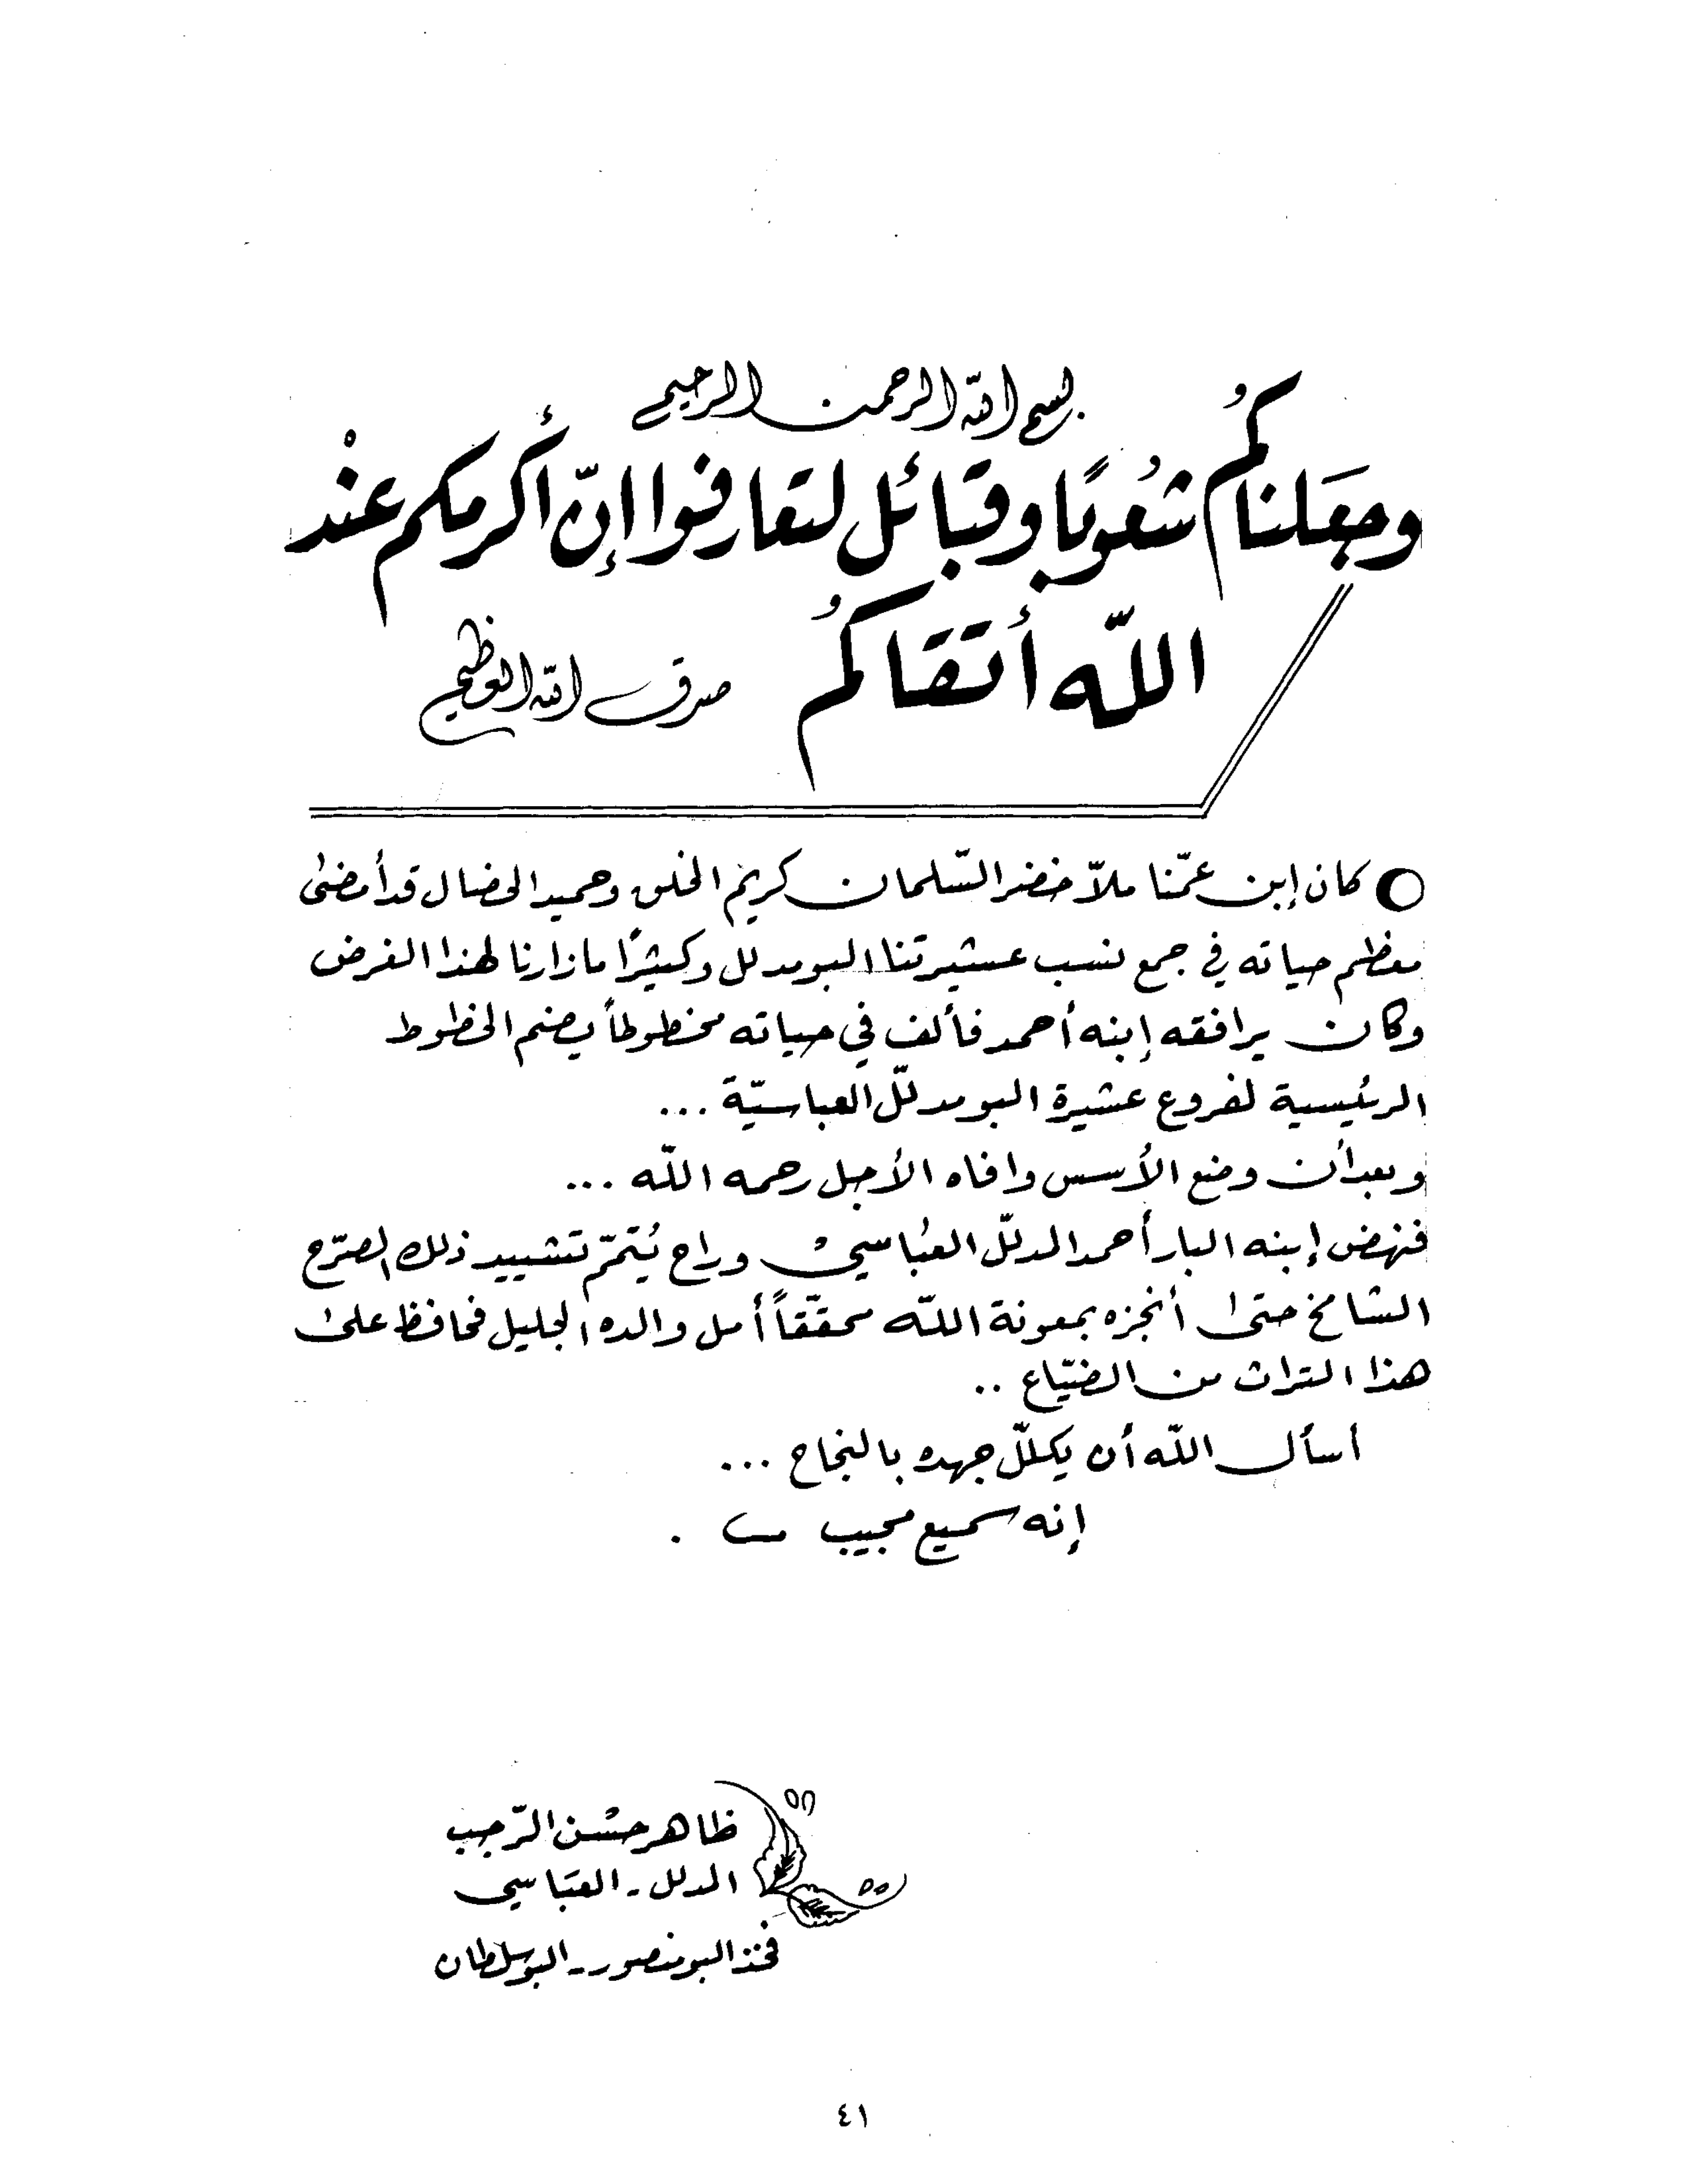 بسم الله الرحمن الرحيم
وجعلناكُم شُعُوبًا وقبائل لتعارفوا إنّ أكرمكم عنْد
اللّه أتقاكُم صدق الله العظيم
كان إبن عمّنا ملاّ خضر السّلمان كريم الخلق وحميد الخصال قد أمضىٰ
معظم حياته في جمع نسب عشيرتنا البومدلل وكثيرًا ما زارنا لهذا الغرض
وكان يرافقه إبنه أحمد فألف في حياته مخطوطاً يضم الخطوط
الرئيسية لفروع عشيرة البومدلّل العباسيّة ...
وبعد أن وضع الأسس وافاه الأجل رحمه اللّه ...
فنهض إبنه البار أحمد المدلّل العبّاسيْ وراح يُتمّم تشييد ذلك الصّرح
الشامخ حتىٰ أنجزه بمعونة اللّه محقّقاً أمل والده الجليل فحافظ علىٰ
هذا التراث من الضيّاع ..
أسأل اللّه أن يكلّل جهده بالنجاح ...
إنه سميع مجيب .
ظاهر حسْن الرّجب
المدلل - العبّاسي
فخذ البومنصور - البوسلطان
٤١